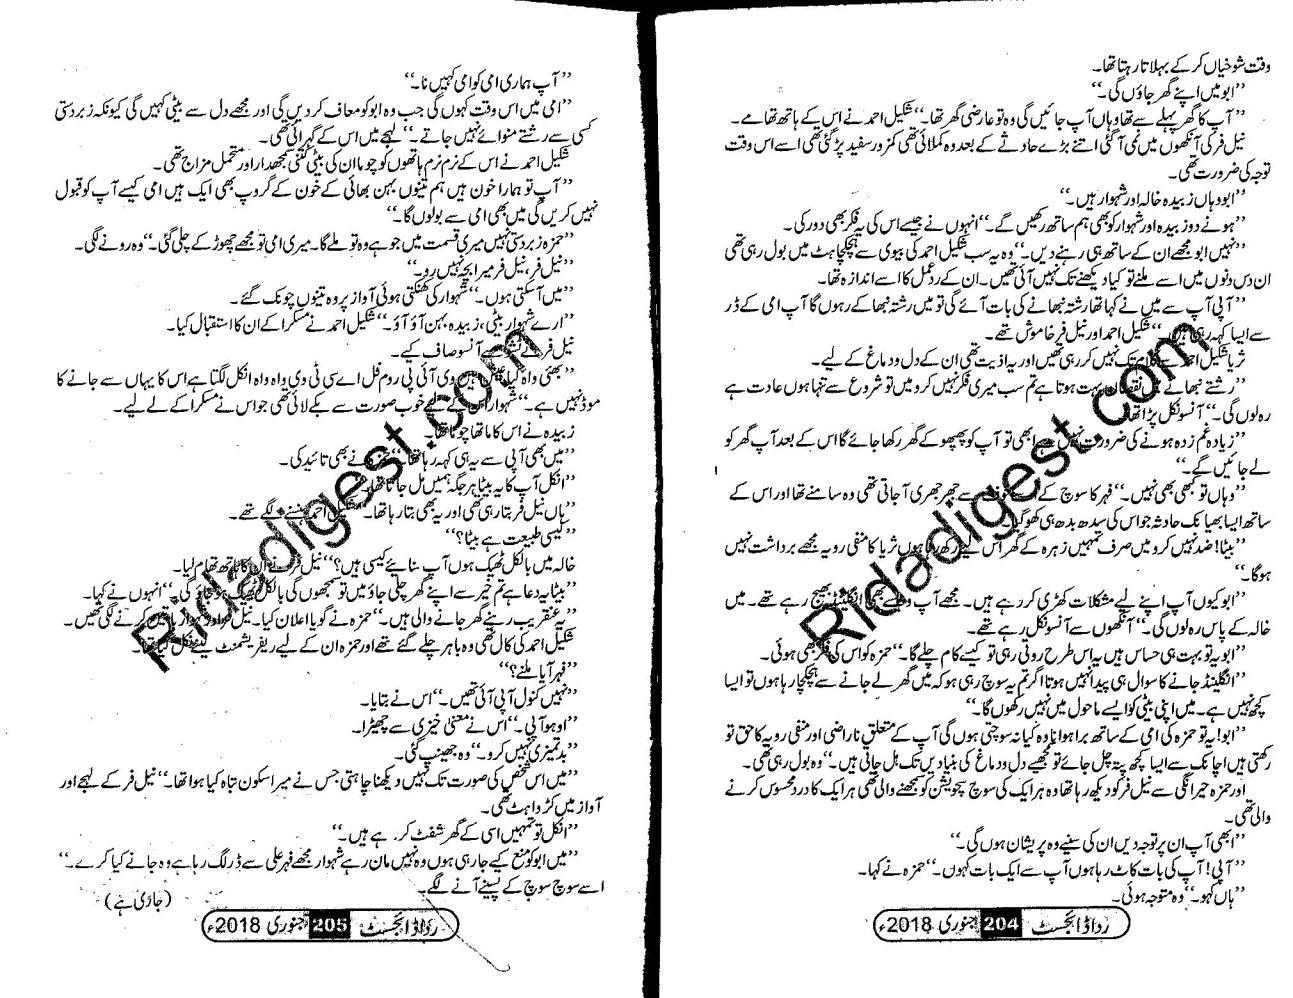 وقت شوخیاں کر کے بہلاتا رہتا تھا۔
’’ابو میں اپنے گھر جاؤں گی۔‘‘
’’آپ کا گھر پہلے سے تھا وہاں آپ جائیں گی وہ تو عارضی گھر تھا۔‘‘ شکیل احمد نے اس کے ہاتھ تھامے۔
نیل فر کی آنکھوں میں نمی آ گئی اتنے بڑے حادثے کے بعد وہ کملائی تھی کمزور سفید پڑ گئی تھی اسے اس وقت
توجہ کی ضرورت تھی۔
’’ابو وہاں زبیدہ خالہ اور شہوار ہیں۔‘‘
’’ہونے دو زبیدہ اور شہوار کو بھی ہم ساتھ رکھیں گے۔‘‘ انہوں نے جیسے اس کی یہ فکر بھی دور کی۔
’’نہیں ابو مجھے ان کے ساتھ ہی رہنے دیں۔‘‘ وہ یہ سب شکیل احمد کی بیوی سے ہچکچاہٹ میں بول رہی تھی
ان دس دنوں میں اسے ملنے تو کیا دیکھنے تک نہیں آئی تھیں۔ ان کے ردعمل کا اسے اندازہ تھا۔
’’آپی آپ سے میں نے کہا تھا رشتہ نبھانے کی بات آئے گی تو میں رشتہ نبھا کے رہوں گا آپ امی کے ڈر
سے ایسا کہہ رہی ہیں۔‘‘ شکیل احمد اور نیل فر خاموش تھے۔
ثریا شکیل احمد سے کلام تک نہیں کر رہی تھیں اور یہ اذیت تھی ان کے دل و دماغ کے لیے۔
’’رشتے نبھانے میں نقصان بہت ہوتا ہے تم سب میری فکر نہیں کرو میں تو شروع سے تنہا ہوں عادت ہے
رہ لوں گی۔‘‘ آنسو نکل پڑا تھا۔
’’زیادہ غم زدہ ہونے کی ضرورت نہیں ہے ابھی تو آپ کو پھپھو کے گھر رکھا جائے گا اس کے بعد آپ گھر کو
لے جائیں گے۔‘‘
’’وہاں تو کبھی بھی نہیں۔‘‘ فہر کا سوچ کے جھرجھری آ جاتی تھی وہ سامنے تھا اور اس کے
ساتھ ایسا بھیانک حادثہ جو اس کی سدھ بدھ ہی کھو گیا۔
’’بیٹا! ضد نہیں کرو میں صرف تمہیں زہرہ کے گھر اس لیے رکھ رہا ہوں ثریا کا منفی رویہ مجھے برداشت نہیں
ہوگا۔‘‘
’’ابو کیوں آپ اپنے لیے مشکلات کھڑی کر رہے ہیں۔ مجھے آپ ویسے بھی انگلینڈ بھیج رہے تھے۔ میں
خالہ کے پاس رہ لوں گی۔‘‘ آنکھوں سے آنسو نکل رہے تھے۔
’’ابو یہ تو بہت ہی حساس ہیں یہ اس طرح روتی رہی تو کیسے کام چلے گا۔‘‘ حمزہ کو اس کی فکر بھی ہوئی۔
’’انگلینڈ جانے کا سوال ہی پیدا نہیں ہوتا اگر تم یہ سوچ رہی ہو کہ میں گھر لے جانے سے ہچکچا رہا ہوں تو ایسا
کچھ نہیں ہے۔ میں اپنی بیٹی کو ایسے ماحول میں نہیں رکھوں گا۔‘‘
’’ابو! یہ تو حمزہ کی امی کے ساتھ برا ہوا نا وہ کیا نہ سوچتی ہوں گی آپ کے متعلق ناراضی اور منفی رویہ کا حق تو
رکھتی ہیں اچانک سے ایسا کچھ پتہ چل جائے تو مجھے دل و دماغ کی بنیادیں تک ہل جاتی ہیں۔‘‘ وہ بول رہی تھی۔
اور حمزہ حیرانگی سے نیل فر کو دیکھ رہا تھا وہ ہر ایک کی سوچ سچویشن کو سمجھنے والی تھی ہر ایک کا درد محسوس کرنے
والی تھی۔
’’ابھی آپ ان پر توجہ دیں ان کی سنیے وہ پریشان ہوں گی۔‘‘
’’آپی! آپ کی بات کاٹ رہا ہوں آپ سے ایک بات کہوں۔‘‘ حمزہ نے کہا۔
’’ہاں کہو۔‘‘ وہ متوجہ ہوئی۔
رداڈائجسٹ 204 جنوری 2018ء
’’آپ ہماری امی کو امی کہیں نا۔‘‘
’’امی میں اس وقت کہوں گی جب وہ ابو کو معاف کر دیں گی اور مجھے دل سے بیٹی کہیں گی کیونکہ زبردستی
کسی سے رشتے منوائے نہیں جاتے۔‘‘ لہجے میں اس کے گہرائی تھی۔
شکیل احمد نے اس کے نرم نرم ہاتھوں کو چوما ان کی بیٹی کتنی سمجھدار اور متحمل مزاج تھی۔
’’آپ تو ہمارا خون ہیں ہم تینوں بہن بھائی کے خون کے گروپ بھی ایک ہیں امی کیسے آپ کو قبول
نہیں کریں گی میں بھی امی سے بولوں گا۔‘‘
’’حمزہ زبردستی نہیں میری قسمت میں جو ہے وہ تو ملے گا۔ میری امی تو مجھے چھوڑ کے چلی گئی۔‘‘ وہ رونے لگی۔
’’نیل فر، نیل فر میرا بچہ نہیں رو۔‘‘
’’میں آ سکتی ہوں۔‘‘ شہوار کی کھنکتی ہوئی آواز پر وہ تینوں چونک گئے۔
’’ارے شہوار بیٹی، زبیدہ بہن آؤ آؤ۔‘‘ شکیل احمد نے مسکرا کے ان کا استقبال کیا۔
نیل فر نے آنسو صاف کیے۔
’’بھئی واہ کیا عیش ہیں وی آئی پی روم فل اے سی ٹی وی واہ واہ انکل لگتا ہے اس کا یہاں سے جانے کا
موڈ نہیں ہے۔‘‘ شہوار اس کے لیے خوب صورت سے بکے لائی تھی جو اس نے مسکرا کے لے لیے۔
زبیدہ نے اس کا ماتھا چوما تھا۔
’’میں بھی آپی سے یہ ہی کہہ رہا تھا۔‘‘ حمزہ نے بھی تائید کی۔
’’انکل آپ کا یہ بیٹا ہر جگہ ہمیں مل جاتا تھا۔‘‘
’’ہاں نیل فر بتا رہی تھی اور یہ بھی بتا رہا تھا۔‘‘ شکیل احمد ہنسنے لگے تھے۔
’’کیسی طبیعت ہے بیٹا؟‘‘
خالہ میں بالکل ٹھیک ہوں آپ بتائیے کیسی ہیں؟‘‘ نیل فر نے ان کا ہاتھ تھام لیا۔
’’بیٹا یہ دعا ہے تم خیر سے اپنے گھر چلی جاؤ میں تو سمجھوں گی بالکل ٹھیک ہو جاؤ گی۔‘‘ انہوں نے کہا۔
’’یہ عنقریب رہنے گھر جانے والی ہیں۔‘‘ حمزہ نے گویا اعلان کیا۔ نیل فر اور شہوار باتیں کرنے لگی تھیں۔
شکیل احمد کی کال تھی وہ باہر چلے گئے تھے اور حمزہ ان کے لیے ریفریشمنٹ لینے نکل گیا تھا۔
’’فہر آیا ملنے؟‘‘
’’نہیں کنول آپی آئی تھیں۔‘‘ اس نے بتایا۔
’’اوہو آپی۔‘‘ اس نے معنیٰ خیزی سے چھیڑا۔
’’بدتمیزی نہیں کرو۔‘‘ وہ جھینپ گئی۔
’’میں اس شخص کی صورت تک نہیں دیکھنا چاہتی جس نے میرا سکون تباہ کیا ہوا تھا۔‘‘ نیل فر کے لہجے اور
آواز میں کڑواہٹ تھی۔
’’انکل تو تمہیں اسی کے گھر شفٹ کر رہے ہیں۔‘‘
’’میں ابو کو منع کیے جا رہی ہوں وہ نہیں مان رہے شہوار مجھے فہر علی سے ڈر لگ رہا ہے وہ جانے کیا کرے۔‘‘
اسے سوچ سوچ کے پسینے آنے لگے۔
(جاری ہے)
رداڈائجسٹ 205 جنوری 2018ء
Ridadigest.com
Ridadigest.com